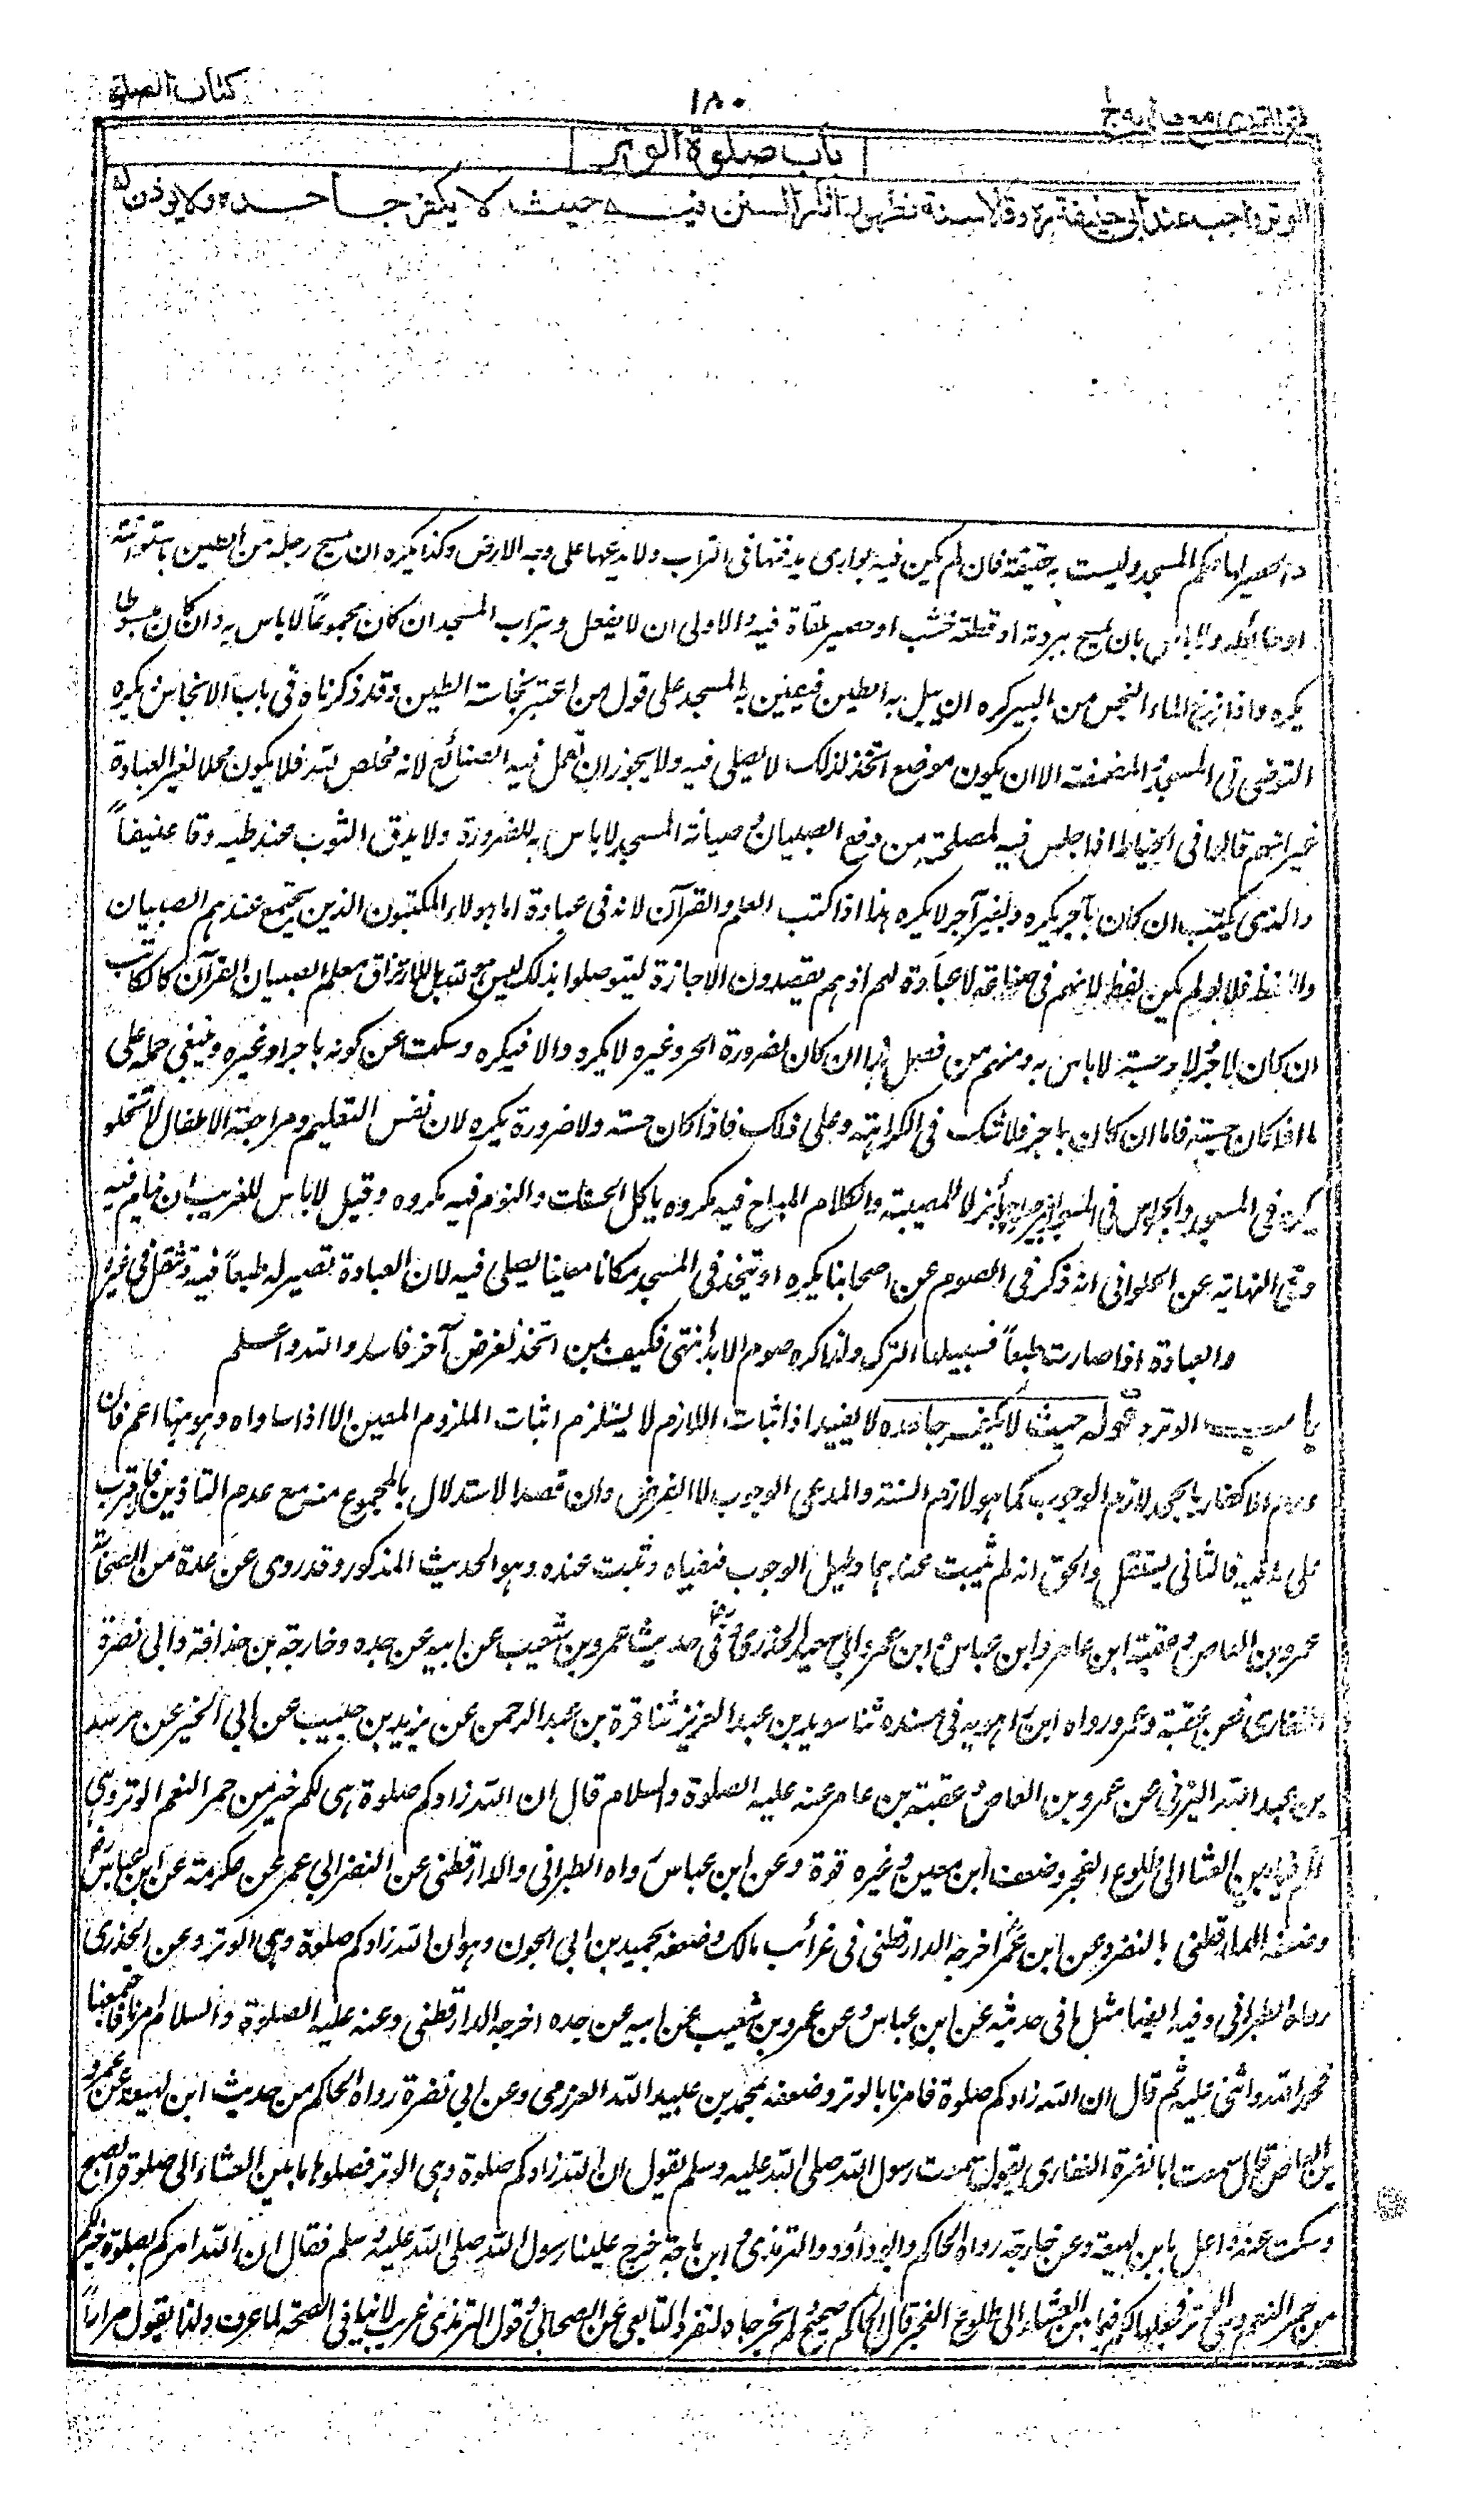 كتاب الصلوة
١٨٠
فتح القدير مع هدايه ج ١
باب صلوة الوتر
الوتر واجب عند أبي حنيفة ره وقالا سنة لظهور آثار السنن فيه حيث لا يكفر جاحده ولا يوذن له
والحصير لها حكم المسجد وليست به حقيقة فان لم يكن فيه بوارى يدفنها فى التراب ولا يدعها على وجه الارض وكذا يكره ان يمسح رجله من الطين باسطوانته
او حائطه ولا باس بان يمسح ببردته او قطعة خشب او حصير ملقاة فيه والاولى ان لا يفعل وبتراب المسجد ان كان مجموعاً لا باس به وان كان مبسوطا
يكره واذا نزع الماء النجس من البير كره ان يبل به الطين فيطين به المسجد على قول من اعتبر نجاسة الطين وقد ذكرناه فى باب الانجاس يكره
التوضى فى المسجد والمضمضة الا ان يكون موضع اتخذ لذلك لا يصلى فيه ولا يجوز ان تعمل فيه الصنائع لانه مخلص لله فلا يكون محلا لغير العبادة
غير انهم قالوا فى الخياط اذا جلس فيه لمصلحته من دفع الصبيان وصيانة المسجد لا باس به للضرورة ولا يدق الثوب عند طيه دقا عنيفاً
والذى يكتب ان كان بآجر يكره وبغير آجر لا يكره هذا اذا كتب العلم والقرآن لانه فى عبادة اما هولاء المكتبون الذين يجتمع عندهم الصبيان
واللغط فلا ولو لم يكن لغط لانهم فى صناعة لا عبادة لهم اذ هم يقصدون الاجازة ليتوصلوا بذلك ليس هو لله بل للارتزاق ومعلم الصبيان القرآن كالكاتب
ان كان لاجر لا وحسبة لا باس به ومنهم من فصل هذا ان كان لضرورة الحر وغيره لا يكره والا فيكره وسكت عن كونه باجر او غيره وينبغى حمله على
ما اذا كان حسبة فاما ان كان باجر فلا شك فى الكراهة وعلى ذلك فاذا كان حسبة ولا ضرورة يكره لان نفس التعليم ومراجعة الاطفال لا تخلو
يكره فى المسجد والجلوس فى المسجد بغير صلوة جائز لا للمصيبة والكلام المباح فيه مكروه ياكل الحسنات والنوم فيه مكروه وقيل لا باس للغريب ان ينام فيه
وفى النهاية عن الحلوانى انه ذكر فى الصوم عن اصحابنا يكره ان يتخذ فى المسجد مكانا معينا يصلى فيه لان العبادة تصير له طبعاً فيه وتثقل فى غيره
والعبادة اذا صارت طبعاً فسبيلها الترك ولذا كره صوم الابد انتهى فكيف بمن اتخذ لغرض آخر فاسد والله واعلم
باب الوتر قوله حيث لا يكفر جاحده لا يفيد اذ اثبات اللازم لا يستلزم اثبات الملزوم المعين الا اذا ساواه وهو هنا اعم فان
عدم الاكفار بالجحد لازم الوجوب كما هو لازم السنة والمدعى الوجوب لا الفرض وان قصد الاستدلال بالمجموع منه مع عدم التاذين فاقرب
على ما فيه فالثانى يستقل والحق انه لم يثبت عندهما دليل الوجوب فنفياه وثبت عنده وهو الحديث المذكور وقد روى عن عدة من الصحابة
عمرو بن العاص وعقبة ابن عامر وابن عباس وابن عمر وابى سعيد الخدرى وفى حديث عمرو بن شعيب عن ابيه عن جده وخارجة بن حذافة وابى نضرة
الغفارى فعن عقبة وعمرو رواه ابن راهويه فى مسنده ثنا سويد بن عبد العزيز ثنا قرة بن عبد الرحمن عن يزيد بن حبيب عن ابى الخير عن مرسد
بن عبد الله اليزنى عن عمرو بن العاص وعقبة بن عامر عنه عليه الصلوة والسلام قال ان الله زادكم صلوة هى لكم خير من حمر النعم الوتر وهى
لكم فيما بين العشا الى طلوع الفجر وضعف ابن معين وغيره قرة وعن ابن عباس رواه الطبرانى والدارقطنى عن النضر ابي عمر عن عكرمة عن ابن عباس
وضعفه الدارقطنى بالنضر وعن ابن عمر اخرجه الدارقطنى فى غرائب مالك وضعفه بحميد بن ابى الجون وهو ان الله زادكم صلوة وهى الوتر وعن الخدرى
رواه الطبرانى وفيه ايضا مثل ما فى حديثه عن ابن عباس وعن عمرو بن شعيب عن ابيه عن جده اخرجه الدارقطنى وعنه عليه الصلوة والسلام امرنا فاجتمعنا
فحمد الله واثنى عليه ثم قال ان الله زادكم صلوة فامرنا بالوتر وضعفه بمحمد بن عبيد الله العرزمى وعن ابى نضرة رواه الحاكم من حديث ابن لهيعة عن عمرو
بن العاص قال سمعت ابا نضرة الغفارى يقول سمعت رسول الله صلى الله عليه وسلم يقول ان الله زادكم صلوة وهى الوتر فصلوها ما بين العشاء الى صلوة الصبح
وسكت عنه واعل بابن لهيعة وعن خارجة رواه الحاكم وابوداؤد والترمذى وابن ماجة خرج علينا رسول الله صلى الله عليه وسلم فقال ان الله امركم بصلوة خير لكم
من حمر النعم وهى الوتر فجعلها لكم فيما بين العشاء الى طلوع الفجر قال الحاكم صحيح ولم يخرجاه لتفرد التابعى عن الصحابى وقول الترمذى غريب لا ينافى الصحة لما عرف ولذا يقول مراراً